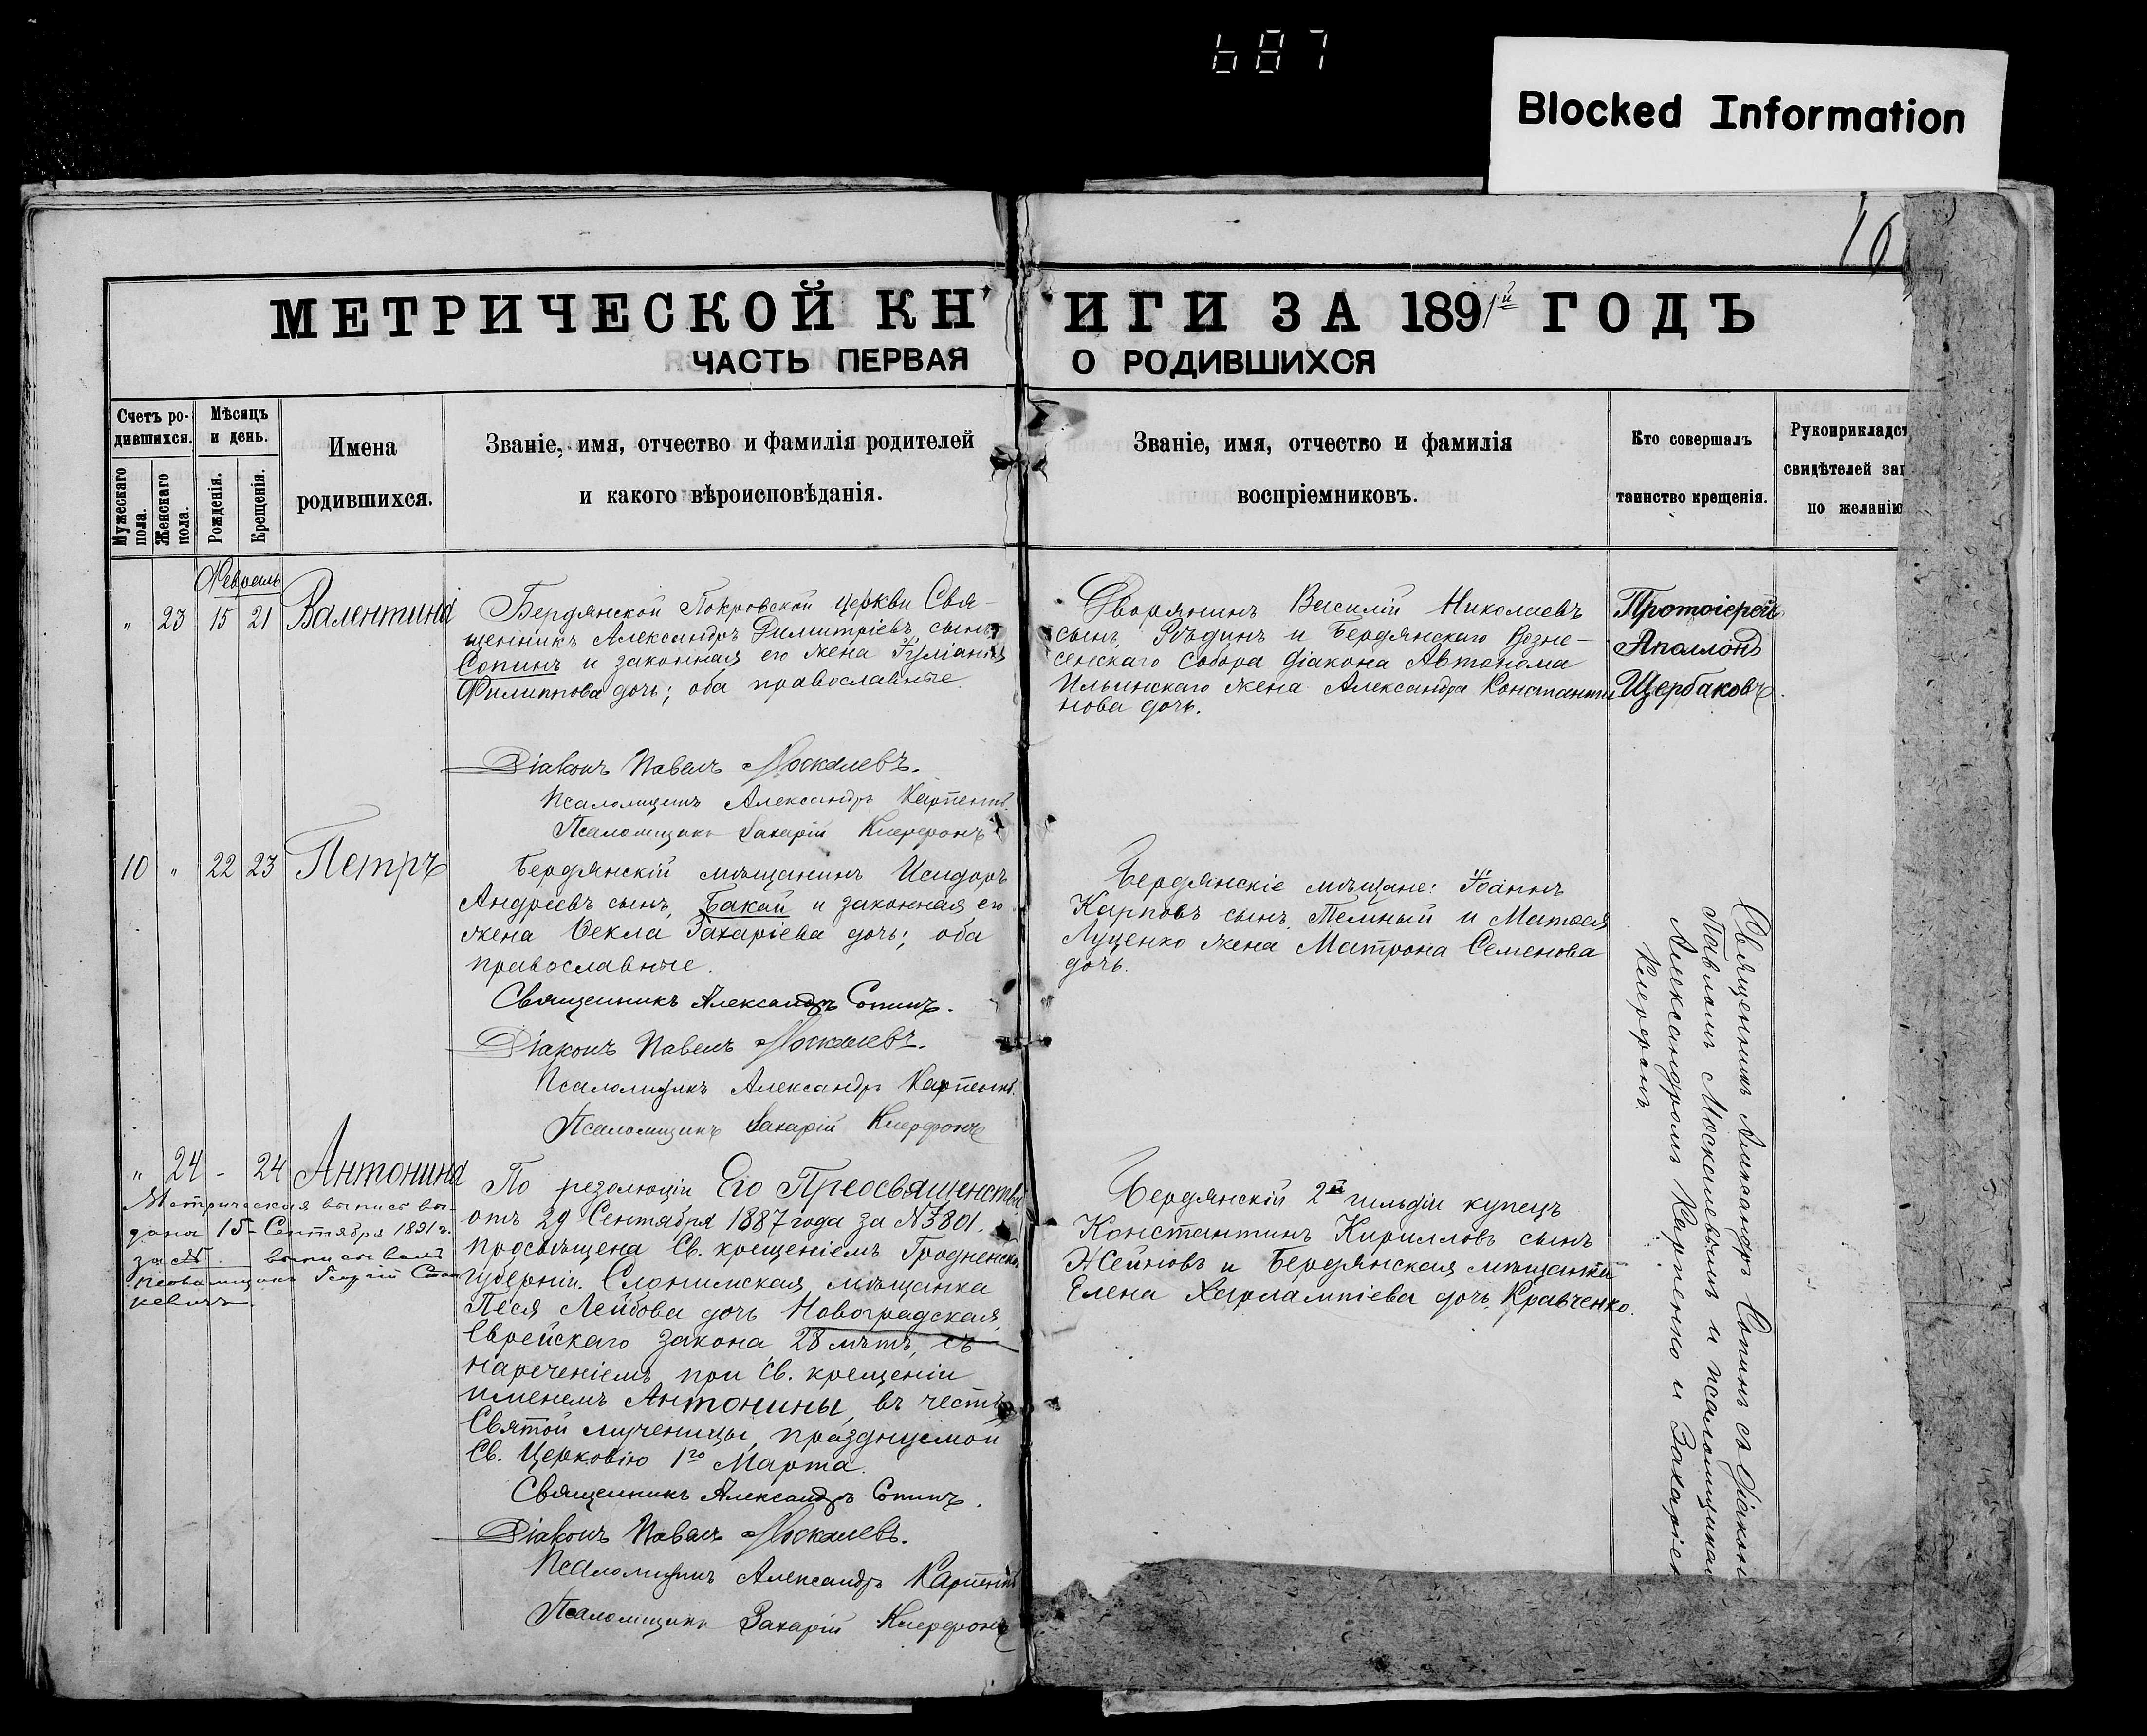 687
Blocked Information
МЕТРИЧЕСКОЙ КНИГИ ЗА 1891й ГОДЪ
ЧАСТЬ ПЕРВАЯ О РОДИВШИХСЯ
Счетъ ро-
дившихся.
Мужескаго
пола.
Женскаго
пола.
Мѣсяцъ
и день.
Рожденія.
Крещенія.
Имена
родившихся.
Званіе, имя, отчество и фамилія родителей
и какого вѣроисповѣданія.
Званіе, имя, отчество и фамилія
воспріемниковъ.
Кто совершалъ
таинство крещенія.
Рукоприкладст
свидѣтелей зап
по желанію
Февраль
" 23 15 21 Валентина
Бердянской Покровской церкви Свя-
щенникъ Александръ Димитріевъ сынъ
Сопинъ и законная его жена Іуліанія
Филиппова дочь; оба православные
Дворянинъ Василій Николаевъ
сынъ Рѣдинъ и Бердянскаго Возне-
сенскаго Собора діакона Автонома
Ильинскаго жена Александра Константи
нова дочь.
Протоіерей
Аполлонъ
Щербаковъ.
Діаконъ Павелъ Москалевъ.
Псаломщикъ Александръ Карпенко.
Псаломщикъ Захарій
10 " 22 23 Петръ
Бердянскій мѣщанинъ Исидоръ
Андреевъ сынъ, Бакай и законная его
жена Ѳекла Захаріева дочь; оба
православные.
Бердянскіе мѣщане: Іоаннъ
Карповъ сынъ, Темный и Матвея
Луценко жена Матрона Семенова
дочь.
Священникъ Александръ Сопинъ.
Діаконъ Павелъ Москалевъ.
Псаломщикъ Александръ Карпенко.
Псаломщикъ Захарій
Священникъ Александръ Сопинъ съ діакон
Павломъ Москалевымъ и псаломщикам
Александромъ Карпенко и Захаріем
" 24 - 24 Антонина
Метрическая выпись вы-
дана 15 Сентября 1891 г.
за №. выписывалъ
псаломщикъ Георгій
По резолюціи Его Преосвященства
отъ 29 Сентября 1887 года за №3801.
просвѣщена Св. крещеніемъ Гродненской
губерніи. Слонимская мѣщанка
Песя Лейбова дочь Новоградская,
Еврейскаго закона, 28 лѣтъ, съ
нареченіемъ при Св. крещеніи
именемъ Антонины, въ честь
Святой мученицы, празднуемой
Св. Церковію 1го Марта.
Бердянскій 2й гильдіи купецъ
Константинъ Кирилловъ сынъ
Жейновъ и Бердянская мѣщанка
Елена Харлампіева дочь, Кравченко.
Священникъ Александръ Сопинъ.
Діаконъ Павелъ Москалевъ.
Псаломщикъ Александръ Карпенко
Псаломщикъ Захарій